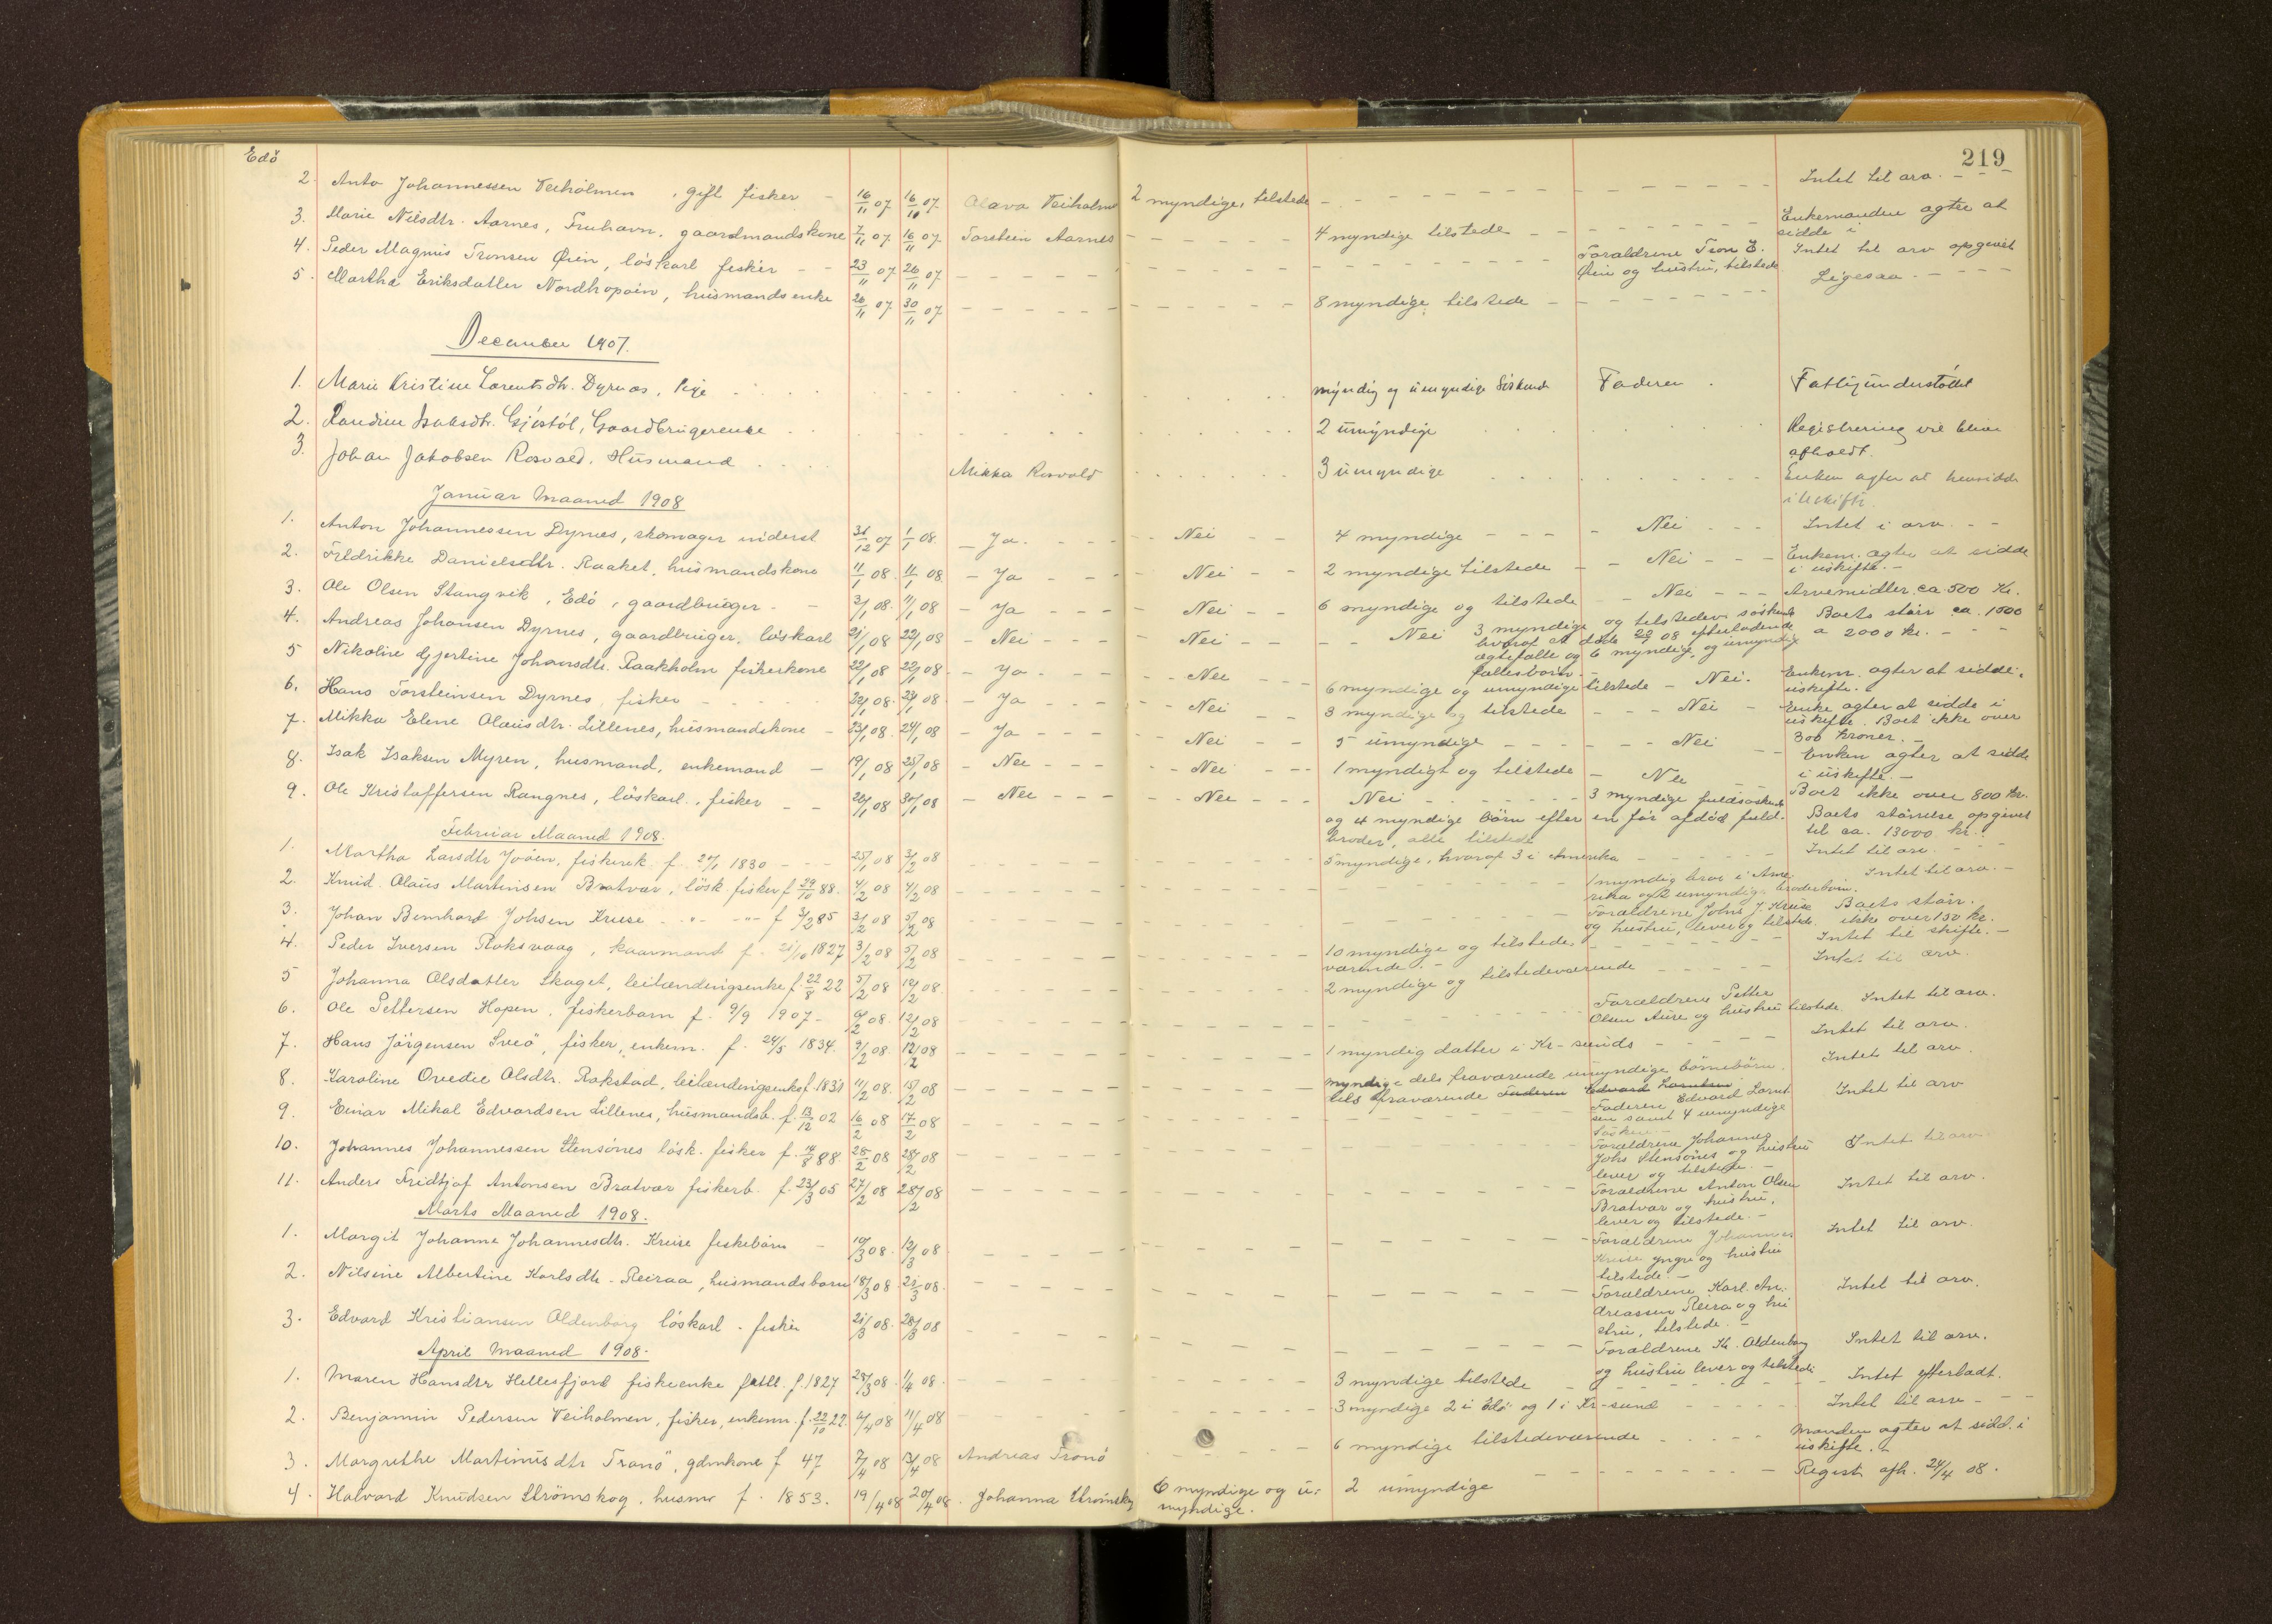 Edö
219
2. Anto Johannessen Veiholmen, gift fisker - 16/11 07 16/10 07 Olava Veiholm 2 myndige, tilstede - - - Intet til arv. - - -
3. Marie Nilsdtr. Aarnes, gaardmandskone 7/11 07 16/11 07 Torstein Aarnes - - - 4 myndige tilstede - - - Enkemanden agter at
sidde i
4. Peder Magnus Tronsen Øien, löskarl fisker - - 23/11 07 26/11 07 - - - Foraldrene Tron E. Intet til arv opgivet
Øien og hustru, tilstede
5. Martha Eriksdatter Nordhopøien, husmandsenke 26/11 07 30/11 07 - - - 8 myndige tilstede - - - Ligesaa. - - -
December 1907.
1. Marie Kristine Lorentsdtr. Dyrnes, Pige . . . myndig og umyndige Söskende Faderen . Fattigunderstöttet
2. Randine Isaksdtr. Gjöstöl, Gaardbrugerenke . . . 2 umyndige . . . Registrering vil blive
afholdt.
3. Johan Jakobsen Rosvold, Husmand . . . Mikka Rosvold . . . 3 umyndige . . . Enken agter at hensidde
i uskifte
Januar Maaned 1908
1. Anton Johannessen Dyrnes, skomager underst 31/12 07 1/1 08. - Ja. - - - Nei - - 4 myndige - - - Nei - - - Intet i arv. - -
2. Fredrikke Danielsdtr. Raaket, husmandskone 11/1 08. 11/1 08. - Ja - - - Nei - - 2 myndige tilstede - - Nei - - - Enkem. agter at sidde
i uskifte. -
3. Ole Olsen Stangvik, Edö, gaardbruger. - 3/1 08. 11/1 08 - Ja - - - Nei - - 6 myndige og tilstede - Nei - - - Arvemidler ca 500 Kr.
4. Andreas Johansen Dyrnes, gaardbruger, löskarl 21/1 08 22/1 08 - Nei - - - Nei - - - Nei 3 myndige og tilstedev. söskende Boets störr ca. 1500
hvoraf et döde 20/1 08 efterladende a 2000 kr. - - -
ægtefælle og 6 myndige, og umyndig
fællesbörn -
5 Nikoline Gjertine Johansdtr. Raakholm fiskerkone 22/1 08 22/1 08 - Ja - - - Nei - - - 6 myndige og umyndige tilstede - Nei. Enkem. agter at sidde i
uskifte. -
6. Hans Torsteinsen Dyrnes, fisker - - - 22/1 08. 23/1 08 - Ja - - - Nei - - 3 myndige og tilstede - - - Nei - Enke agter at sidde i
uskifte. Boet ikke over
300 kroner. -
7. Mikka Elene Olausdtr. Lillenes, husmandskone - 23/1 08. 24/1 08 - Ja - - - Nei - - 5 umyndige - - - Nei - - Enken agter at sidde
i uskifte. -
8. Isak Isaksen Myren, husmand, enkemand - 19/1 08 25/1 08 - Nei - - - Nei - - - 1 myndigt og tilstede - Nei - - Boet ikke over 800 Kr.
9. Ole Kristoffersen Rangnes, löskarl, fisker - - 20/1 08 30/1 08 - Nei - - - Nei - - - Nei - - - 3 myndige fuldsöskende Boets störrelse opgivet
og 4 myndige börn efter en för afdöd fuld- til ca. 13000 kr.
broder, alle tilstede
Februar Maaned 1908.
1. Martha Larsdtr , fiskerek. f. 24/1 1830 - - - 25/1 08 3/2 08 - - - 5 myndige, hvoraf 3 i Amerika - - - Intet til arv. - - -
2. Knud Olaus Martinsen Bratvær, lösk. fisker f 29/10 88. 4/2 08 4/2 08 - - - 1 myndig bror i Ame- Intet til arv. -
rika og 2 umyndige broderbörn.
3. Johan Bernhard Johsen Kruse - " - - " - f 3/2 85 3/2 08 5/2 08 - - - Foraldrene Johs J. Kruse Boets störr.
og hustru, lever og tilstede. ikke over 150 kr.
4. Peder Iversen Roksvaag, kaarmand f. 21/10 1827 3/2 08 5/2 08 - - - 10 myndige og tilstede - - - Intet til skifte. -
værende. -
5 Johanna Olsdatter Skaget, leilændingsenke f. 22/8 22 5/2 08 12/2 08. - - - 2 myndige og tilstedeværende - - - Intet til arv.
6. Ole Pettersen Hopen, fiskerbarn f. 9/9 1907 - 9/2 08. 12/2 08 - - - Foraldrene Petter Intet til arv.
Olsen Aure og hustru tilstede
7. Hans Jörgensen Sveö, fisker, enkem. f. 24/5 1834. 9/2 08. 12/2 08 - - - 1 myndig datter i Kr-sunds - - - Intet til arv.
8. Karoline Ovedie Olsdtr. Rokstad, leilændingsenke f. 1831 11/2 08. 15/2 08 - - - myndige dels fraværende umyndige börnebörn. Intet til arv.
tils fraværende Faderen Edvard Lorntsen
9. Einar Mikal Edvardsen Lillenes, husmandsb. f. 13/12 02 16/2 08 17/2 08 - - - Faderen Edvard Lornt- Intet til arv
sen samt 4 umyndige
Sösken. -
10. Johannes Johannessen Stensönes lösk. fisker f. 14/8 88 25/2 08 28/2 08 - - - Foraldrene Johannes Intet til arv
Johs Stensönes og hustru
lever og tilstede. -
11. Anders Fridtjof Antonsen Bratvær fiskerb. f. 23/3 05 27/2 08 28/2 08 - - - Foraldrene Anton Olsen Intet til arv.
Bratvær og hustru,
lever og tilstede. -
Marts Maaned 1908.
1. Margit Johanne Johannesdtr. Kruse fiskebarn - 10/3 08. 12/3 08 - - - Foraldrene Johannes Intet til arv.
Kruse yngre og hustru
tilstede. -
2. Nilsine Albertine Karlsdtr. Reiraa, husmandsbarn 18/3 08 21/3 08. - - - Foraldrene Karl An- Intet til arv.
dreassen Reira og hu
stru, tilstede. -
3. Edvard Kristiansen Oldenborg löskarl - fisker 21/3 08. 28/3 08 - - - Foraldrene Kr. Oldenborg Intet til arv.
og hustru lever og tilstede
April Maaned 1908.
1. Maren Hansdtr Hellesfjord fiskeenke fattl. f. 1827 28/3 08. 1/4 08. - - - 3 myndige tilstede - - - Intet efterladt.
2. Benjamin Pedersen Veiholmen, fisker, enkem. f. 22/10 22. 4/4 08 11/4 08 - - - 3 myndige 2 i Edö og 1 i Kr-sund - - - Intet til arv - - -
3. Margrethe Martinusdtr Tranö, gdmkone f 47 7/4 08 13/4 08 Andreas Tronö - - - 6 myndige tilstedeværende - - - Manden agter at sidd. i
uskifte. -
4. Halvard Knudsen Strömskog, husm f. 1853. 19/4 08 20/4 08. Johanna Strömskg 6 myndige og u- 2 umyndige - - - Regist. afh. 24/4 08.
myndige.